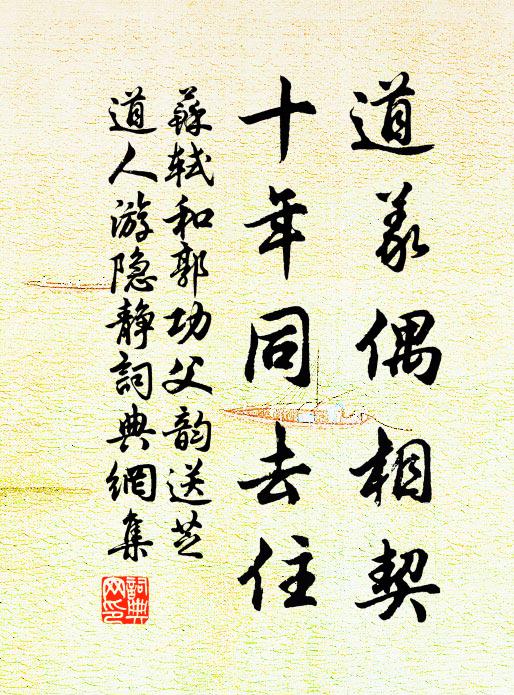 道义偶相契
十年同去住
蘇軾和郭功父韵送芝
道人游隐静詞典網集
詞典网印